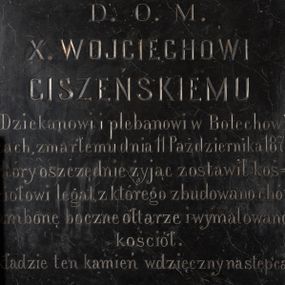 D. O. M.
X. WOJCIĘCHOWI
CISZEŃSKIEMU
Dziekanowi i plebanowi w Bolechow
ach, zmarłemu dnia 11 Października 187
tóry oszczędnie żyjąc zostawił koś=
ołowi legat, z którego zbudowano chó
ambonę boczne ołtarze i wymalowano
kościół.
ładzie ten kamień wdzięczny następca